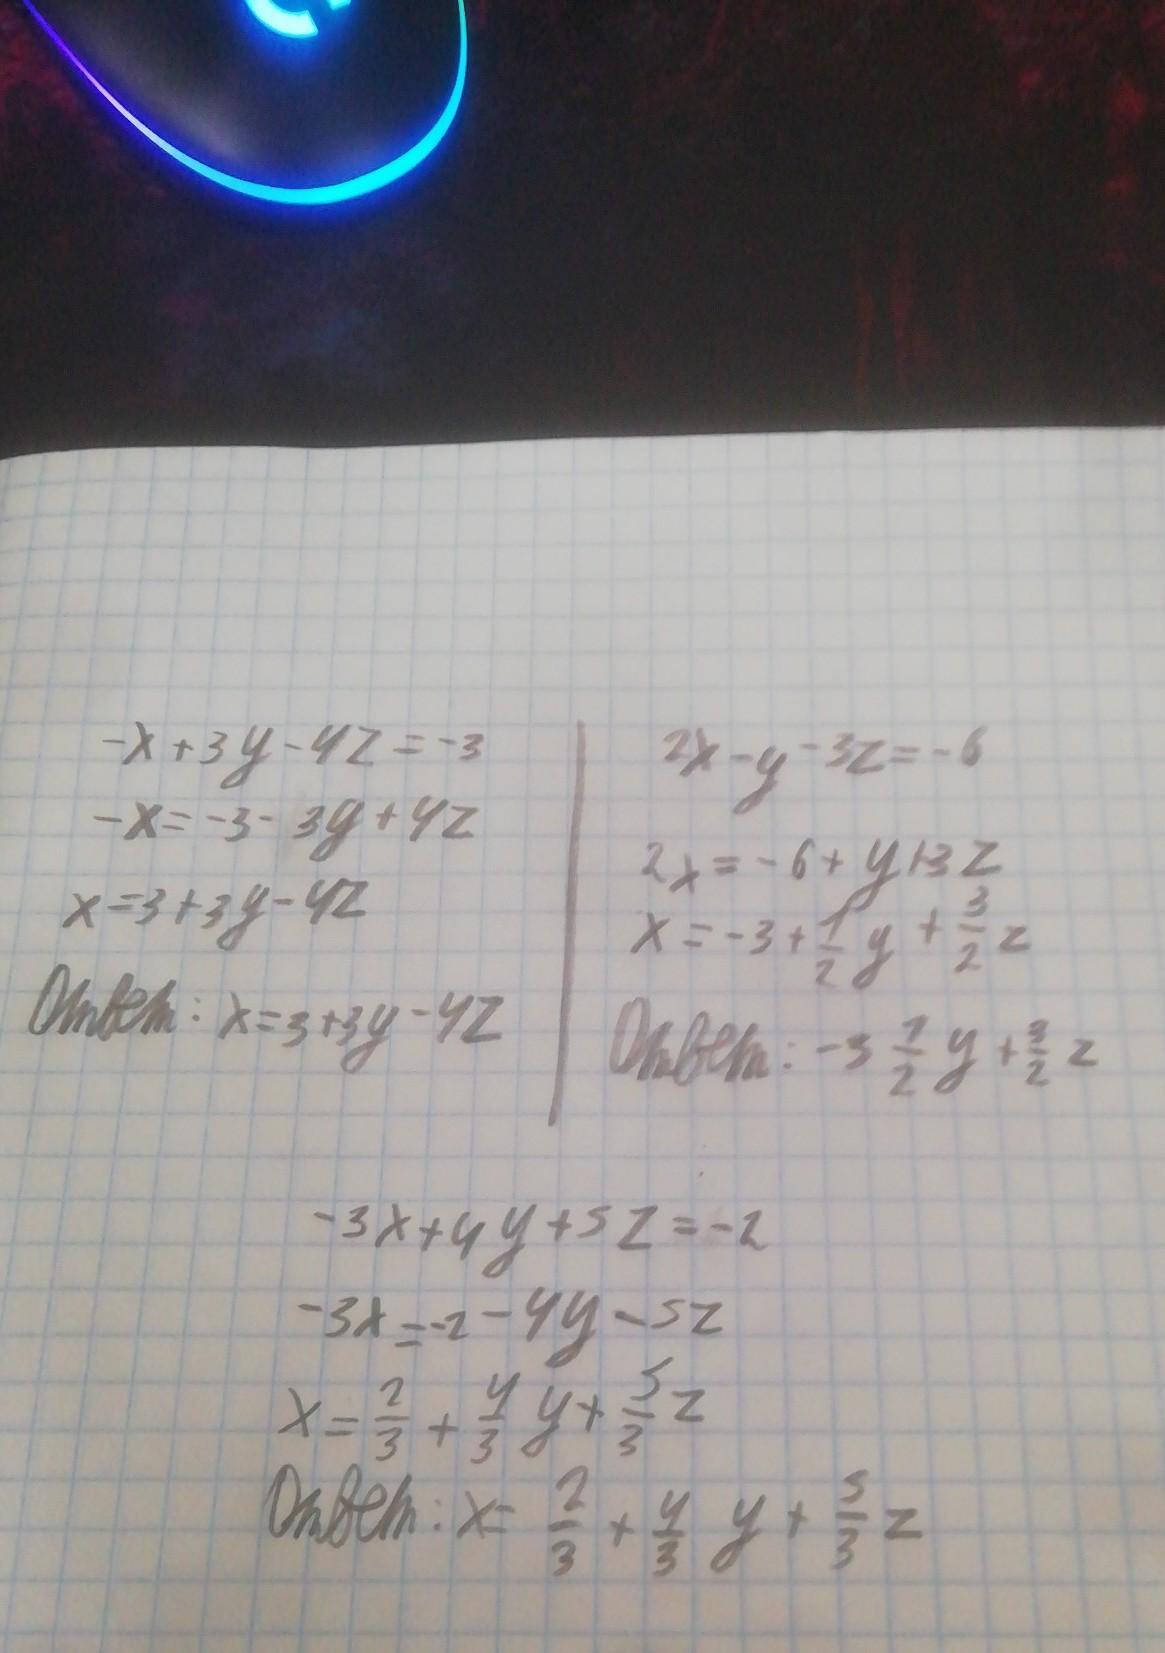 -x+3y-4z=-3
-x=-3-3y+4z
x=3+3y-4z
Ответ: x=3+3y-4z
2x-y-3z=-6
2x=-6+y+3z
x=-3+1/2 y+3/2 z
Ответ: -3 1/2 y+3/2 z
-3x+4y+5z=-2
-3x=-2-4y-5z
x=2/3+4/3 y+5/3 z
Ответ: x= 2/3+4/3 y+5/3 z